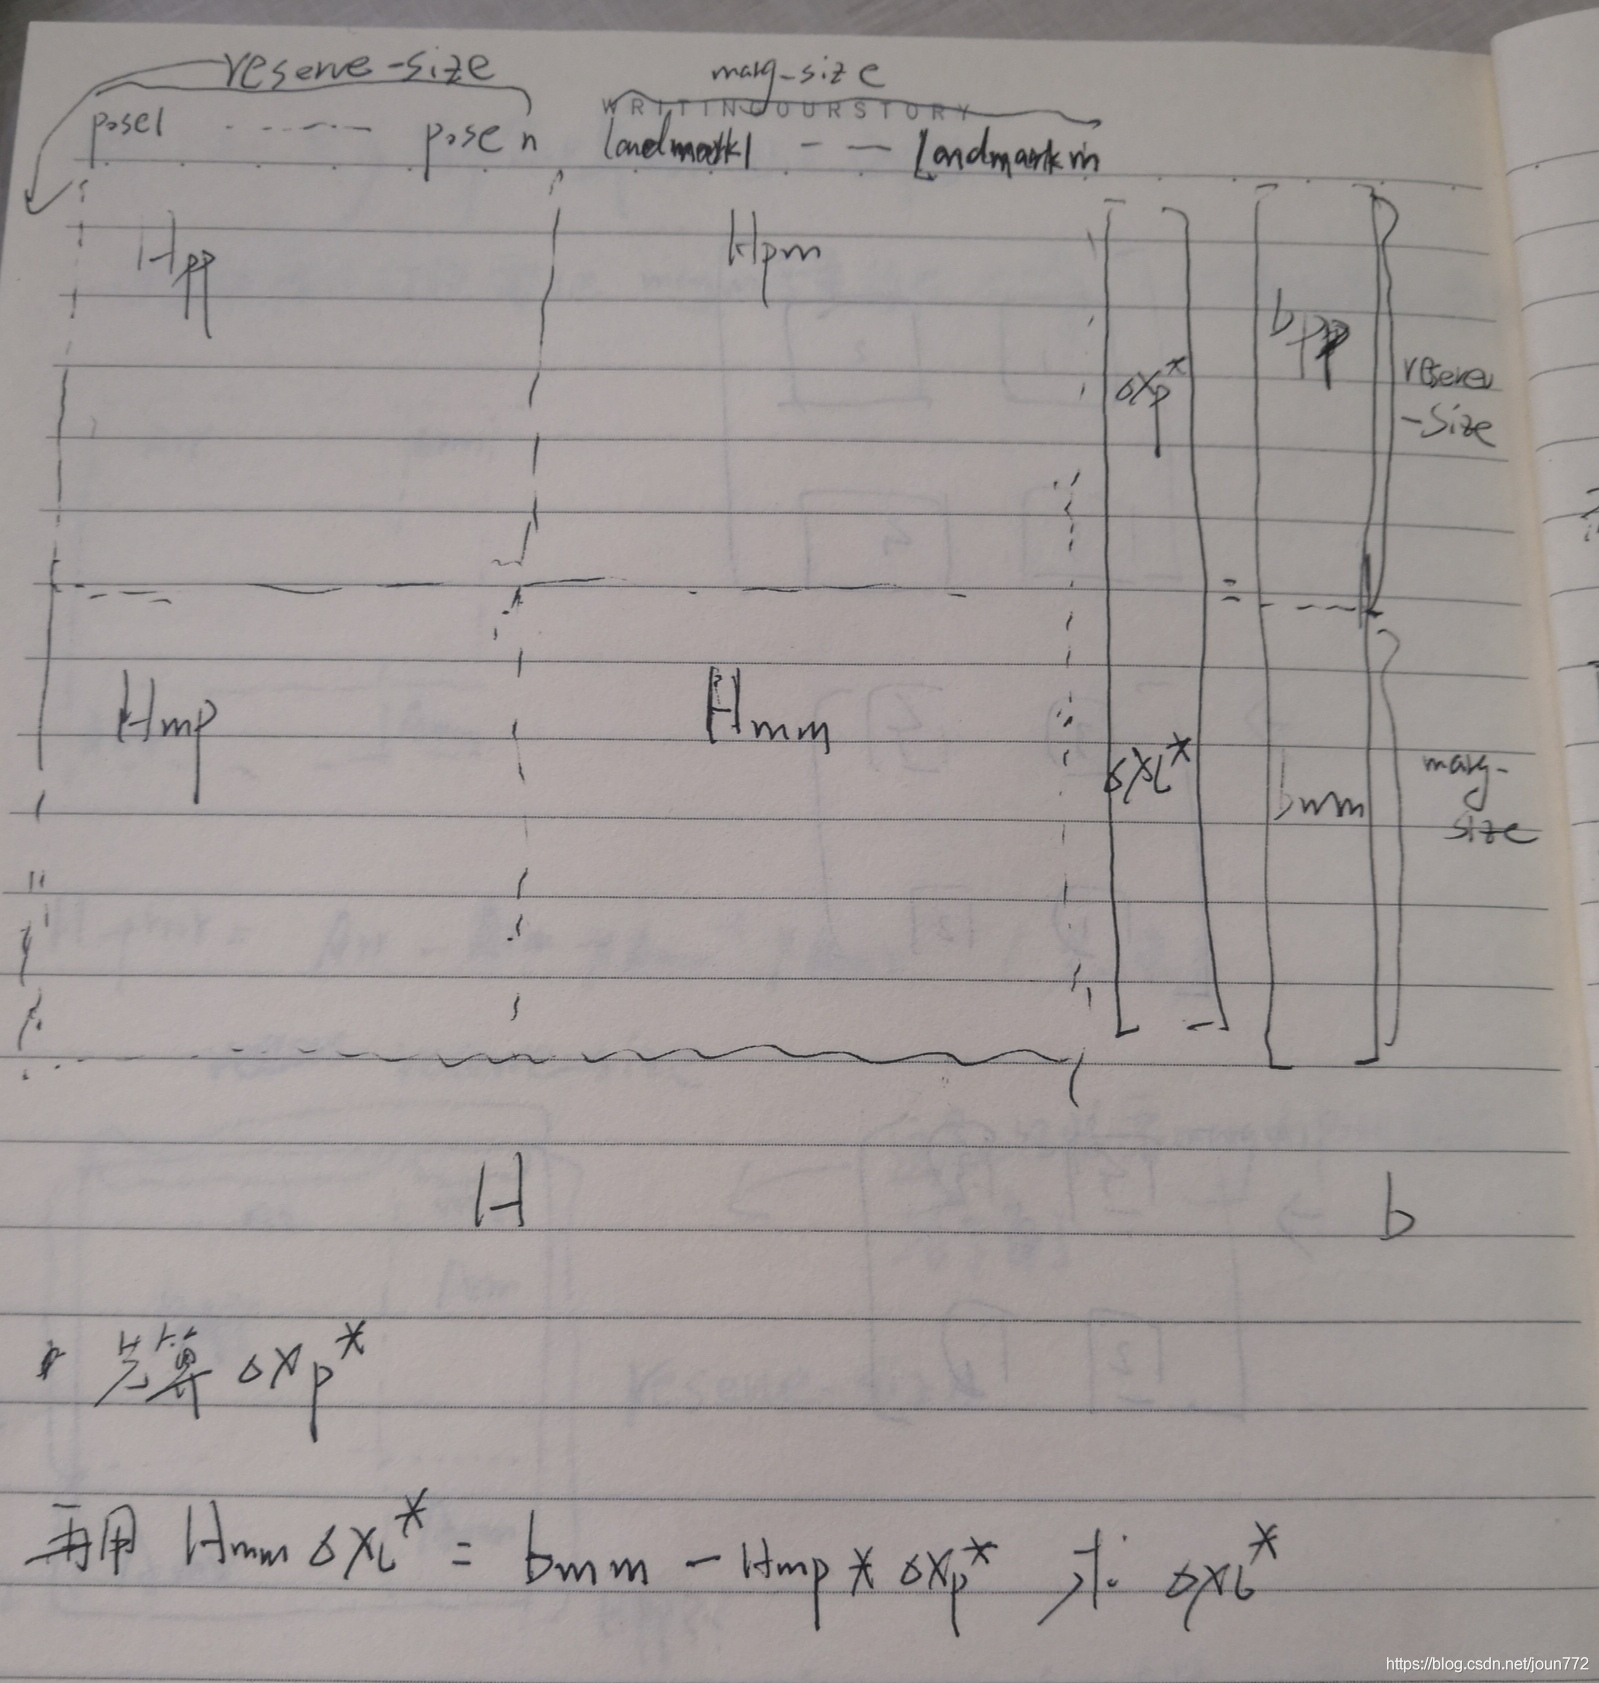 reserve-size marg-size
WRITINGOURSTORY
pose1 ------ pose n landmark1 - — landmark m
Hpp Hpm
bpp
Δxp* reserve
-size
=
Hmp Hmm
ΔxL* bmm marg-
size
H b
先算 Δxp*
再用 Hmm ΔxL* = bmm - Hmp * Δxp* 求 ΔxL*
https://blog.csdn.net/joun772